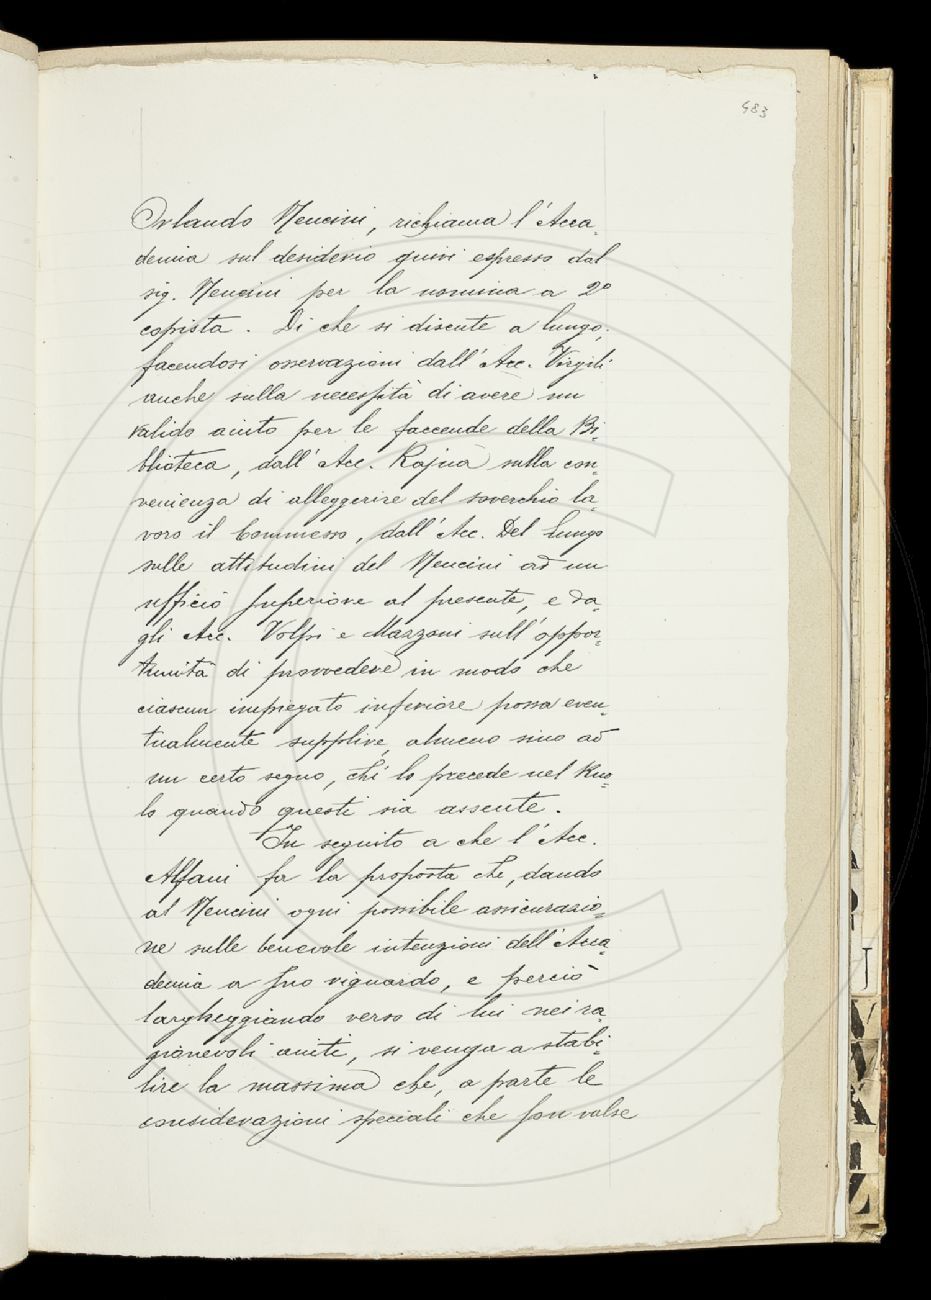 483
Orlando Mencini, richiama l'Acca-
demia sul desiderio quivi espresso dal
sig. Mencini per la nomina a 2º
copista. Di che si discute a lungo,
facendosi osservazioni dall'Acc. Virgili
anche sulla necessità di avere un
valido aiuto per le faccende della Bi-
blioteca, dall'Acc. Rajna sulla con-
venienza di alleggerire del soverchio la-
voro il Commesso, dall'Acc. Del Lungo
sulle attitudini del Mencini ad un
ufficio superiore al presente, e da-
gli Acc. Volpi e Mazzoni sull'oppor-
tunità di provvedere in modo che
ciascun impiegato inferiore possa even-
tualmente supplire, almeno sino ad
un certo segno, chi lo precede nel Ruo-
lo quando questi sia assente.
In seguito a che l'Acc.
Alfani fa la proposta che, dando
al Mencini ogni possibile assicurazio-
ne sulle benevole intenzioni dell'Acca-
demia a suo riguardo, e perciò
largheggiando verso di lui nei ra-
gionevoli aiuti, si venga a stabi-
lire la massima che, a parte le
considerazioni speciali che son valse